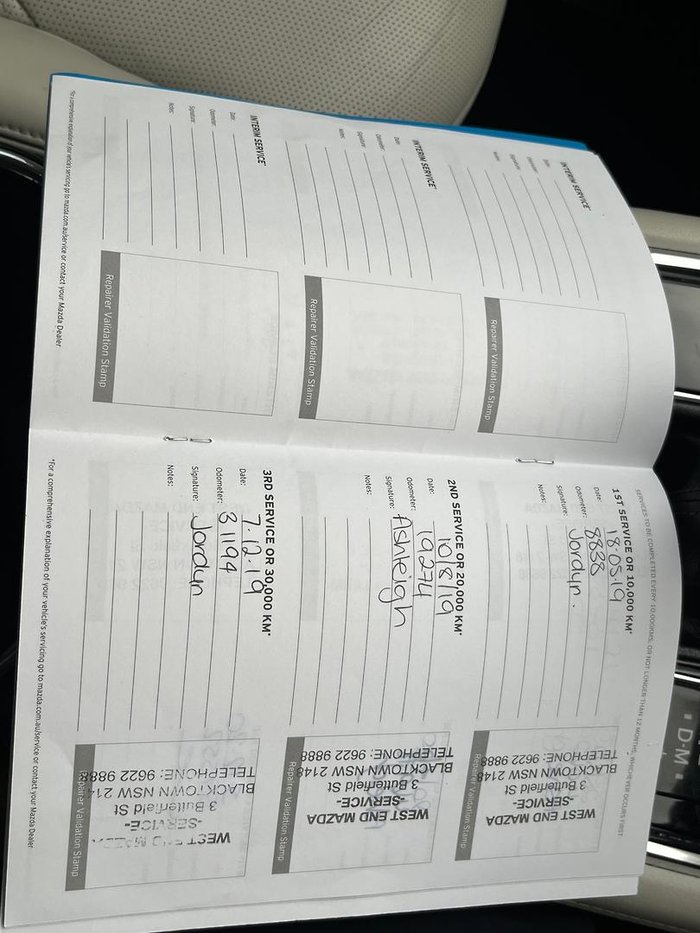 INTERIM SERVICE*
Date:
Odometer:
Signature:
Notes:
Repairer Validation Stamp
INTERIM SERVICE*
Date:
Odometer:
Signature:
Notes:
Repairer Validation Stamp
INTERIM SERVICE*
Date:
Odometer:
Signature:
Notes:
Repairer Validation Stamp
*For a comprehensive explanation of your vehicle's servicing go to mazda.com.au/service or contact your Mazda Dealer.
SERVICES TO BE COMPLETED EVERY 10,000KMS, OR NOT LONGER THAN 12 MONTHS, WHICHEVER OCCURS FIRST
1ST SERVICE OR 10,000 KM*
Date: 18.05.19
Odometer: 8838
Signature: Jordyn.
Notes:
WEST END MAZDA
-SERVICE-
3 Butterfield St
BLACKTOWN NSW 2148
TELEPHONE: 9622 9888
Repairer Validation Stamp
2ND SERVICE OR 20,000 KM*
Date: 10/8/19
Odometer: 19274
Signature: Ashleigh
Notes:
WEST END MAZDA
-SERVICE-
3 Butterfield St
BLACKTOWN NSW 2148
TELEPHONE: 9622 9888
Repairer Validation Stamp
3RD SERVICE OR 30,000 KM*
Date: 7.12.19
Odometer: 31194
Signature: Jordyn
Notes:
WEST END MAZDA
-SERVICE-
3 Butterfield St
BLACKTOWN NSW 214
TELEPHONE: 9622 9888
Repairer Validation Stamp
*For a comprehensive explanation of your vehicle's servicing go to mazda.com.au/service or contact your Mazda Dealer
D-M